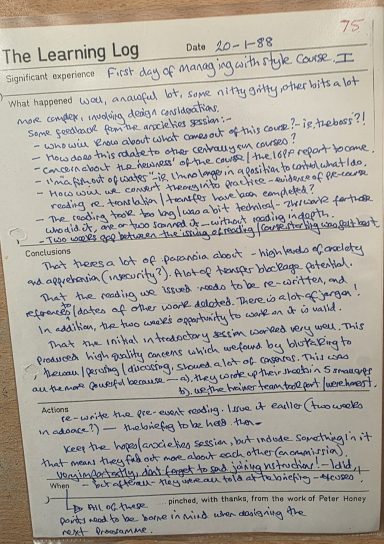 75
The Learning Log
Date 20-1-88
Significant experience First day of Managing with style Course. I
What happened Well, an awful lot, some nitty gritty, other bits a lot
more complex, involving design considerations.
Some feedback from the anxieties session:-
- Who will know about what comes out of this course? - ie, the boss?!
- How does this relate to other centrally run courses?
- Concern about the 'newness' of the course / the 16PF report to come.
- "I'm a fish out of water" - ie, I'm no longer in a position to control what I do.
- How will we convert theory into practice - evidence of pre-course
reading re. translation / transfer have been completed?
- The reading took too long / was a bit technical - 2hrs work for those
who did it, one or two scanned it - without reading in depth.
- Two weeks gap between the issuing of reading / course starting was felt best.
Conclusions
That there's a lot of paranoia about - high levels of anxiety
and apprehension (insecurity?). A lot of transfer blockage potential.
That the reading we issued needs to be re-written, and
references to / dates of other work deleted. There is a lot of jargon!
In addition, the two weeks opportunity to work on it is valid.
That the initial introductory session worked very well. This
produced high quality concerns which we found by blutacking to
the wall / perusing / discussing, showed a lot of consensus. This was
all the more powerful because - a), they wrote up their sheets in 5 small grps
b), we, the trainer team took part / were honest.
Actions
re-write the pre-event reading. Issue it earlier (two weeks
in advance?) - the briefing to be held then.
Keep the hopes/anxieties session, but include something in it
that means they find out more about each other (an omission).
Very importantly, don't forget to send joining instructions! - I did,
When - but after all - they were all told at the briefing - excuses!
... pinched, with thanks, from the work of Peter Honey
ALL OF these
points need to be borne in mind when designing the
next Programme.